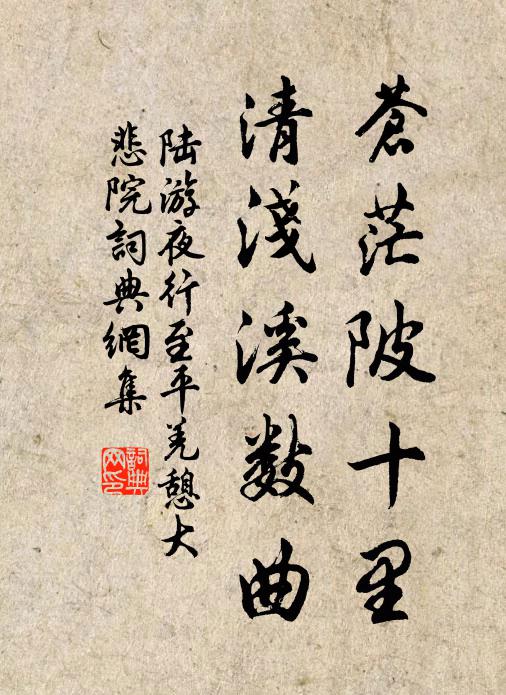 蒼茫陂十里
清淺溪數曲
陆游夜行至平羌憩大
悲院詞典網集
詞典网印